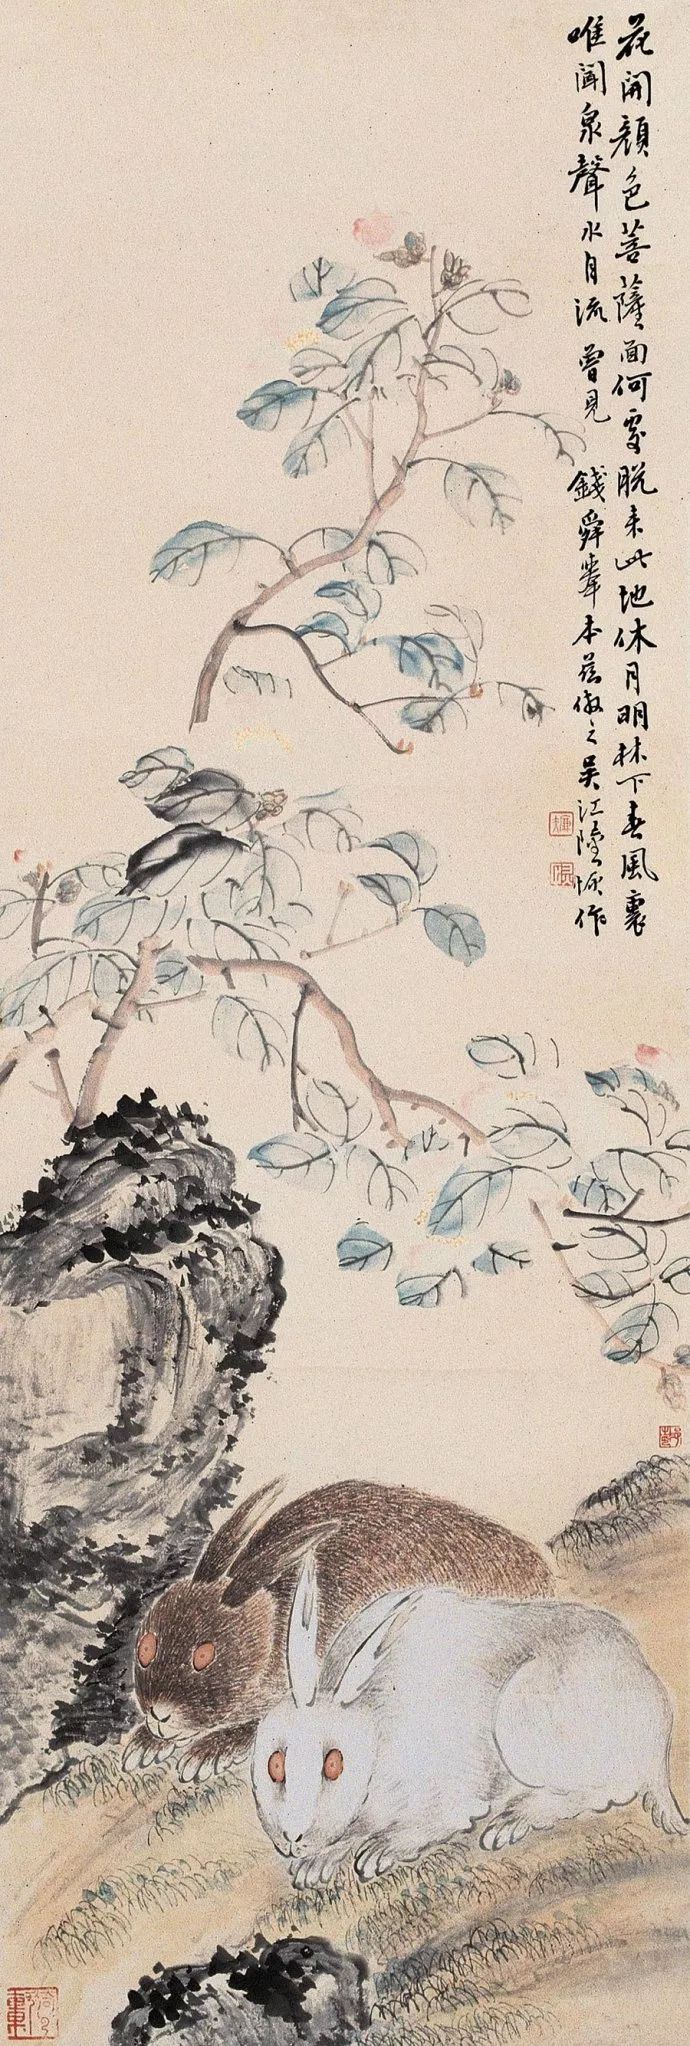 花開顏色菩薩面何處脫來此地休月明林下春風裏
唯聞泉聲水自流 曾見 錢舜舉本茲倣之吳江陸恢作